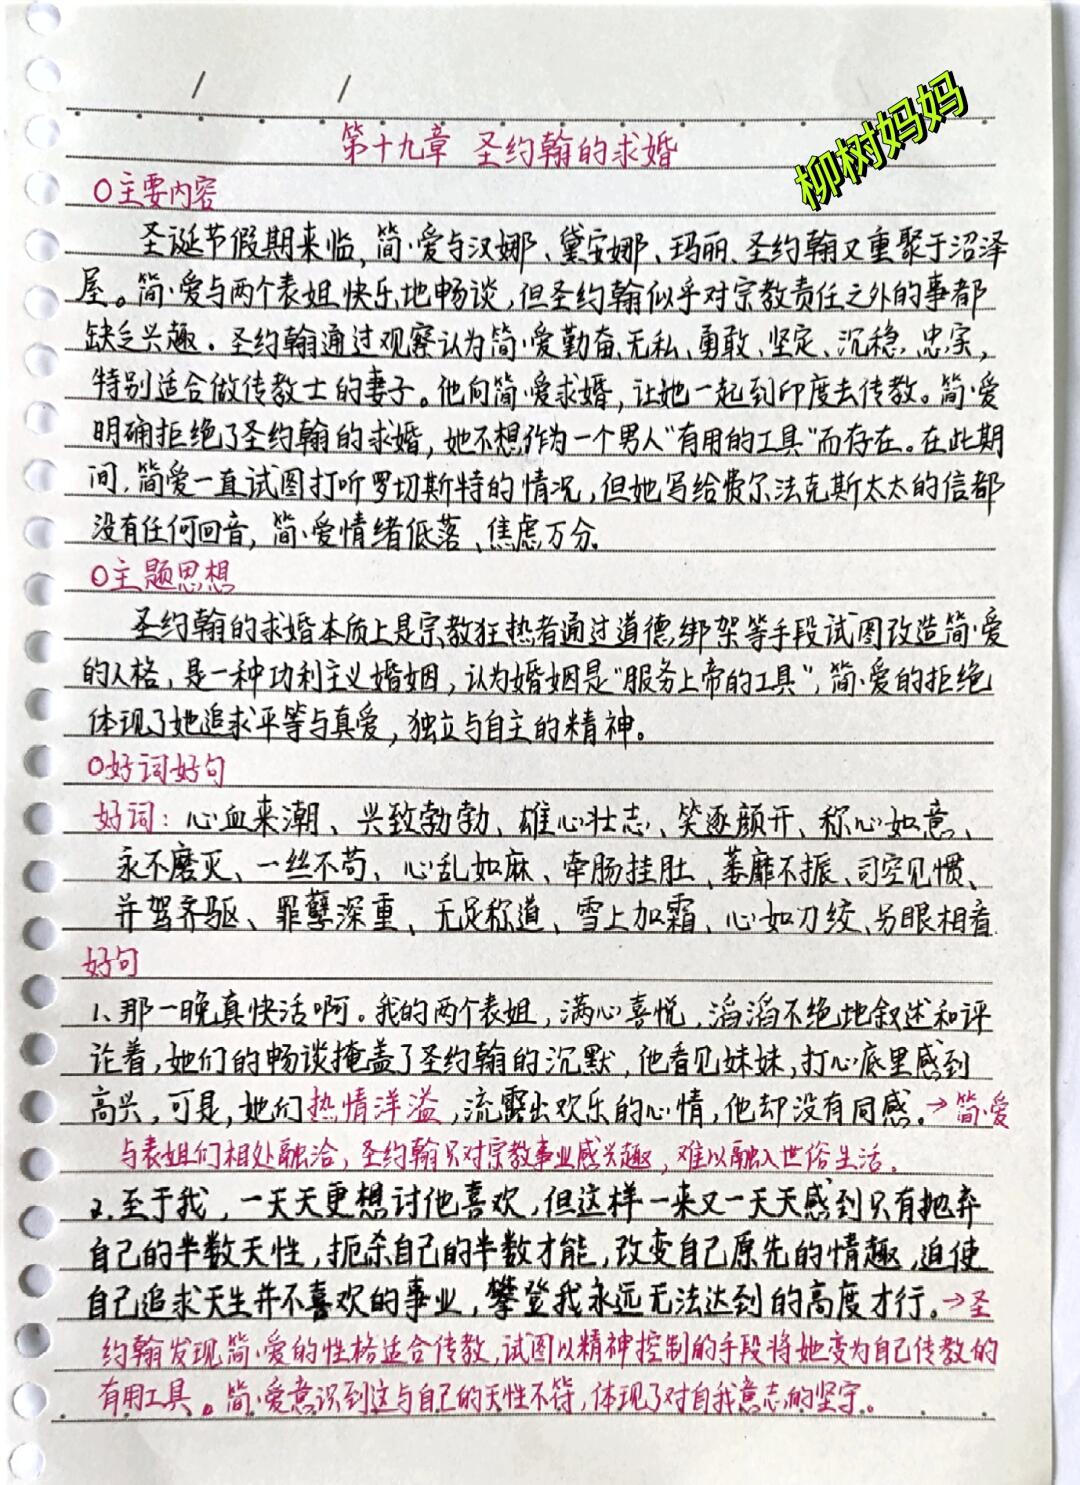 柳树妈妈
第十九章 圣约翰的求婚
○主要内容
圣诞节假期来临,简·爱与汉娜、黛安娜、玛丽、圣约翰又重聚于沼泽
屋。简·爱与两个表姐快乐地畅谈,但圣约翰似乎对宗教责任之外的事都
缺乏兴趣。圣约翰通过观察认为简·爱勤奋、无私、勇敢、坚定、沉稳、忠实,
特别适合做传教士的妻子。他向简·爱求婚,让她一起到印度去传教。简·爱
明确拒绝了圣约翰的求婚,她不想作为一个男人“有用的工具”而存在。在此期
间,简爱一直试图打听罗切斯特的情况,但她写给费尔法克斯太太的信都
没有任何回音,简·爱情绪低落、焦虑万分。
○主题思想
圣约翰的求婚本质上是宗教狂热者通过道德绑架等手段试图改造简·爱
的人格,是一种功利主义婚姻,认为婚姻是“服务上帝的工具”,简·爱的拒绝
体现了她追求平等与真爱,独立与自主的精神。
○好词好句
好词:心血来潮、兴致勃勃、雄心壮志、笑逐颜开、称心如意、
永不磨灭、一丝不苟、心乱如麻、牵肠挂肚、萎靡不振、司空见惯、
并驾齐驱、罪孽深重、无足称道、雪上加霜、心如刀绞、另眼相看
好句
1、那一晚真快活啊。我的两个表姐,满心喜悦,滔滔不绝地叙述和评
论着,她们的畅谈掩盖了圣约翰的沉默,他看见妹妹,打心底里感到
高兴,可是,她们热情洋溢,流露出欢乐的心情,他却没有同感。→简·爱
与表姐们相处融洽,圣约翰只对宗教事业感兴趣,难以融入世俗生活。
2、至于我,一天天更想讨他喜欢,但这样一来又一天天感到只有抛弃
自己的半数天性,扼杀自己的半数才能,改变自己原先的情趣,迫使
自己追求天生并不喜欢的事业,攀登我永远无法达到的高度才行。→圣
约翰发现简·爱的性格适合传教,试图以精神控制的手段将她变为自己传教的
有用工具。简·爱意识到这与自己的天性不符,体现了对自我意志的坚守。